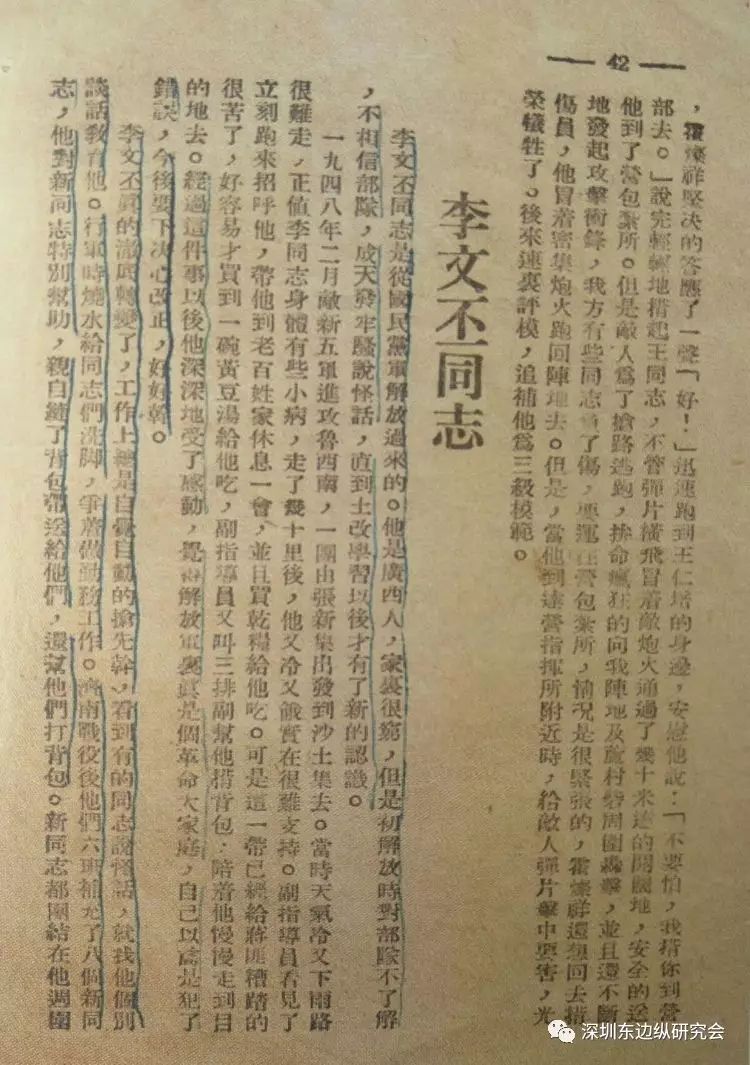 42
，霍燦祥堅决的答應了一聲「好！」迅速跑到王仁塔的身邊，安慰他說：「不要怕，我揹你到營
部去。」說完輕輕地揹起王同志，不管彈片橫飛冒着敵炮火通過了幾十米達的開闊地，安全的送
他到了營包紮所。但是敵人爲了搶路逃跑，拚命瘋狂的向我陣地及蘆村砦周圍轟擊，並且還不斷
地發起攻擊衝鋒，我方有些同志負了傷，要運往營包紮所，情况是很緊張的，霍燦祥還想回去揹
傷員，他冒着密集炮火跑回陣地去。但是，當他到達營指揮所附近時，給敵人彈片擊中要害，光
榮犧牲了。後來連裏評模，追補他爲三級模範。
李文不同志
李文不同志是從國民黨軍解放過來的。他是廣西人，家裏很窮，但是初解放時對部隊不了解
，不相信部隊，成天發牢騷說怪話，直到土改學習以後才有了新的認識。
一九四八年二月敵新五軍進攻魯西南，一團由張新集出發到沙土集去。當時天氣冷又下雨路
很難走，正值李同志身體有些小病，走了幾十里後，他又冷又餓實在很難支持。副指導員看見了
立刻跑來招呼他，帶他到老百姓家休息一會，並且買乾糧給他吃。可是這一帶已經給蔣匪糟踏的
很苦了，好容易才買到一碗黃豆湯給他吃，副指導員又叫三排副幫他揹背包，陪着他慢慢走到目
的地去。經過這件事以後他深深地受了感動，覺得解放軍裏眞是個革命大家庭，自己以爲是犯了
錯誤，今後要下决心改正，好好幹。
李文不眞的澈底轉變了，工作上總是自覺自動的搶先幹，看到有的同志說怪話，就找他個別
談話敎育他。行軍時燒水給同志們洗脚，爭着做勤務工作。濟南戰役後他們六班補充了八個新同
志，他對新同志特別幫助，親自縫了背包帶送給他們，還幫他們打背包。新同志都團結在他週圍
深圳东边纵研究会